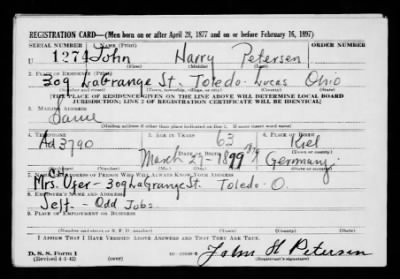 REGISTRATION CARD—(Men born on or after April 28, 1877 and on or before February 16, 1897)
SERIAL NUMBER 1. NAME (Print) ORDER NUMBER
U 1274 John Harry Petersen
(First) (Middle) (Last)
2. PLACE OF RESIDENCE (Print)
309 LaGrange St. Toledo Lucas Ohio
(Number and street) (Town, township, village, or city) (County) (State)
[THE PLACE OF RESIDENCE GIVEN ON THE LINE ABOVE WILL DETERMINE LOCAL BOARD
JURISDICTION; LINE 2 OF REGISTRATION CERTIFICATE WILL BE IDENTICAL]
3. MAILING ADDRESS
Same
(Mailing address if other than place indicated on line 2. If same insert word same)
4. TELEPHONE 5. AGE IN YEARS 6. PLACE OF BIRTH
63 Kiel
Ad 3790 DATE OF BIRTH
March 27-1879 Germany
7. NAME AND ADDRESS OF PERSON WHO WILL ALWAYS KNOW YOUR ADDRESS
Mrs. Ofer - 309 LaGrange St. Toledo - O.
8. EMPLOYER'S NAME AND ADDRESS
Self - Odd Jobs
9. PLACE OF EMPLOYMENT OR BUSINESS
(Number and street or R. F. D. number) (Town) (County) (State)
I AFFIRM THAT I HAVE VERIFIED ABOVE ANSWERS AND THAT THEY ARE TRUE.
D. S. S. Form 1
(Revised 4-1-42) John H Petersen